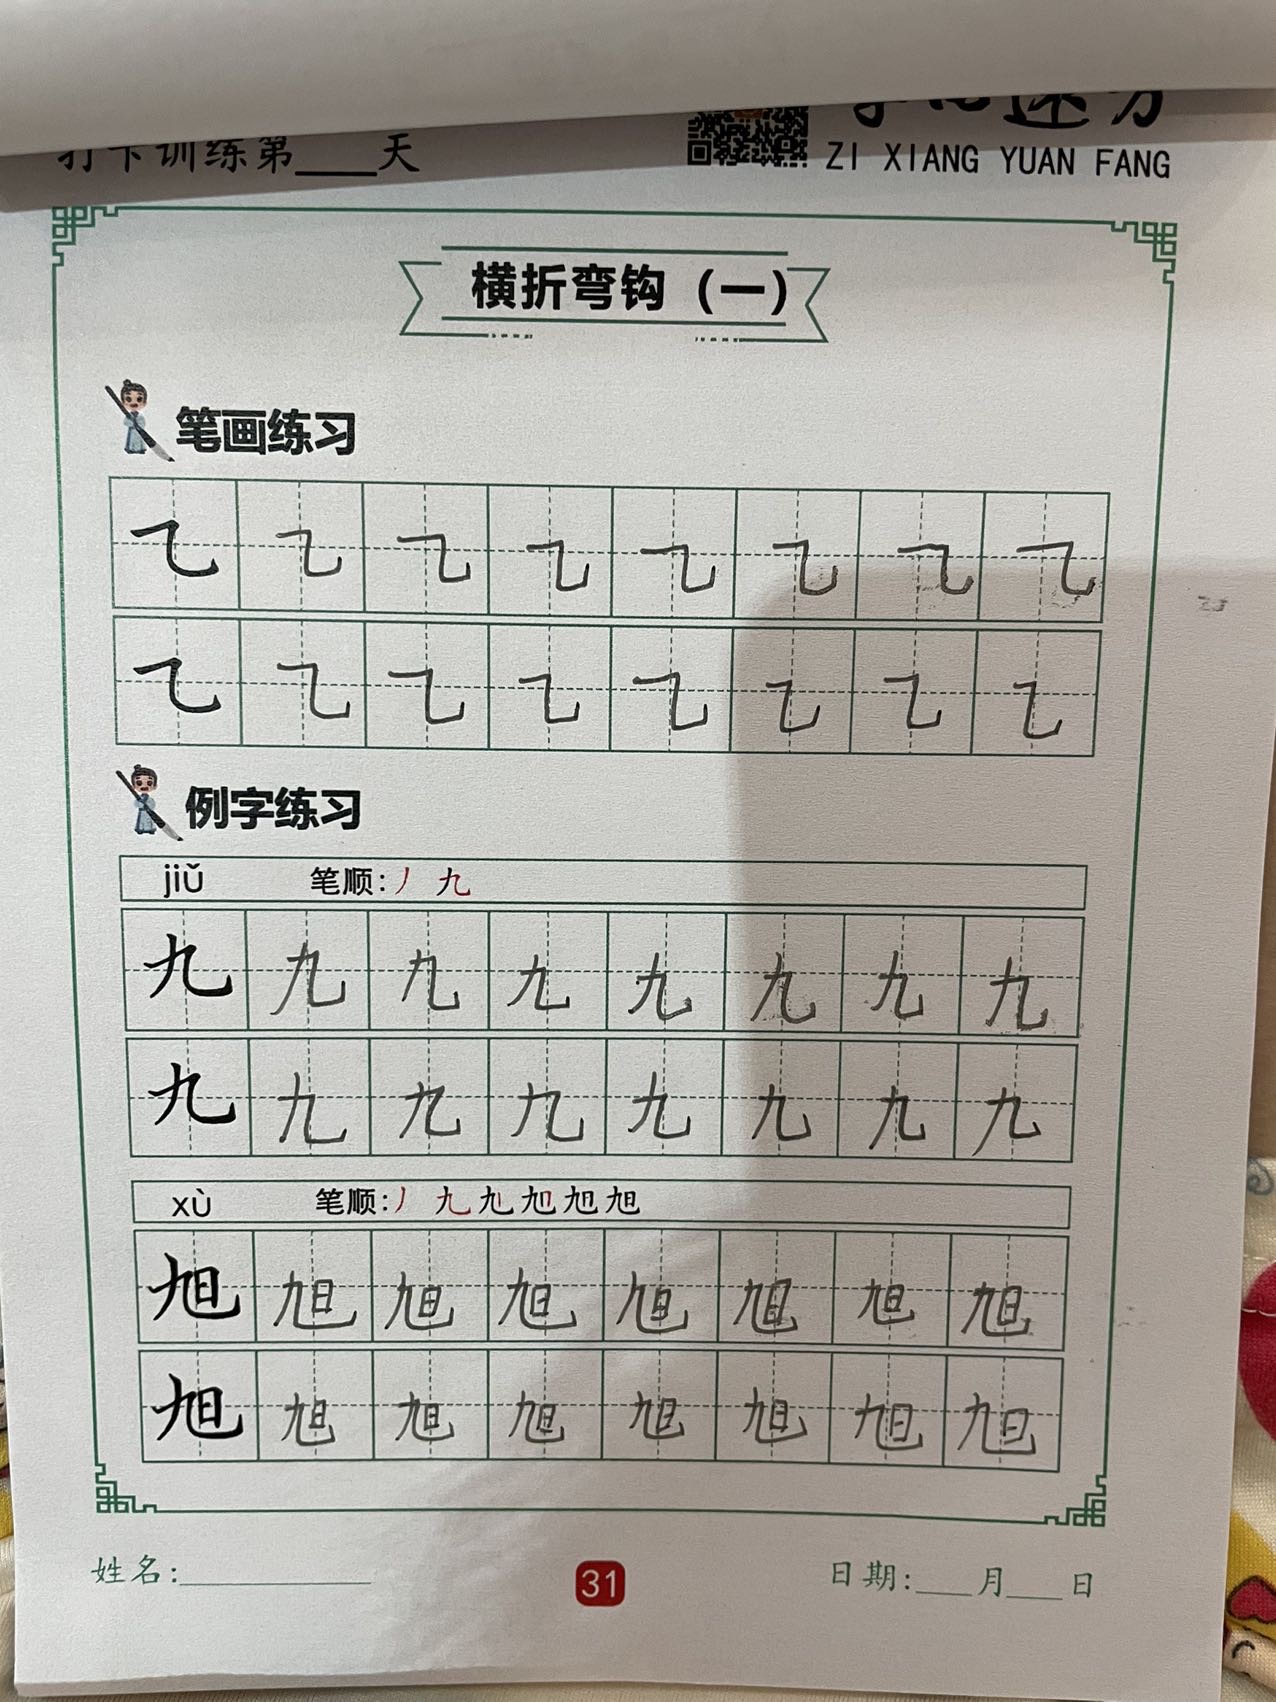 打卡训练第____天
ZI XIANG YUAN FANG
横折弯钩（一）
笔画练习
㇈ ㇈ ㇈ ㇈ ㇈ ㇈ ㇈ ㇈
㇈ ㇈ ㇈ ㇈ ㇈ ㇈ ㇈ ㇈
例字练习
jiǔ 笔顺：丿 九
九 九 九 九 九 九 九 九
九 九 九 九 九 九 九 九
xù 笔顺：丿 九
旭 旭 旭 旭 旭 旭 旭 旭
旭 旭 旭 旭 旭 旭 旭 旭
姓名：__________ 31 日期：____月____日